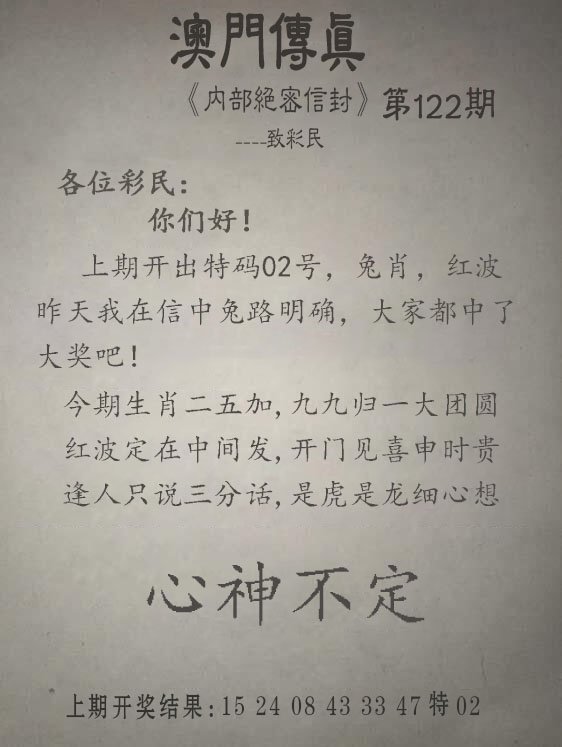 澳門傳眞
《内部絕密信封》第122期
----致彩民
各位彩民：
你们好！
上期开出特码02号，兔肖，红波
昨天我在信中兔路明确，大家都中了
大奖吧！
今期生肖二五加,九九归一大团圆
红波定在中间发,开门见喜申时贵
逢人只说三分话,是虎是龙细心想
心神不定
上期开奖结果:15 24 08 43 33 47特02